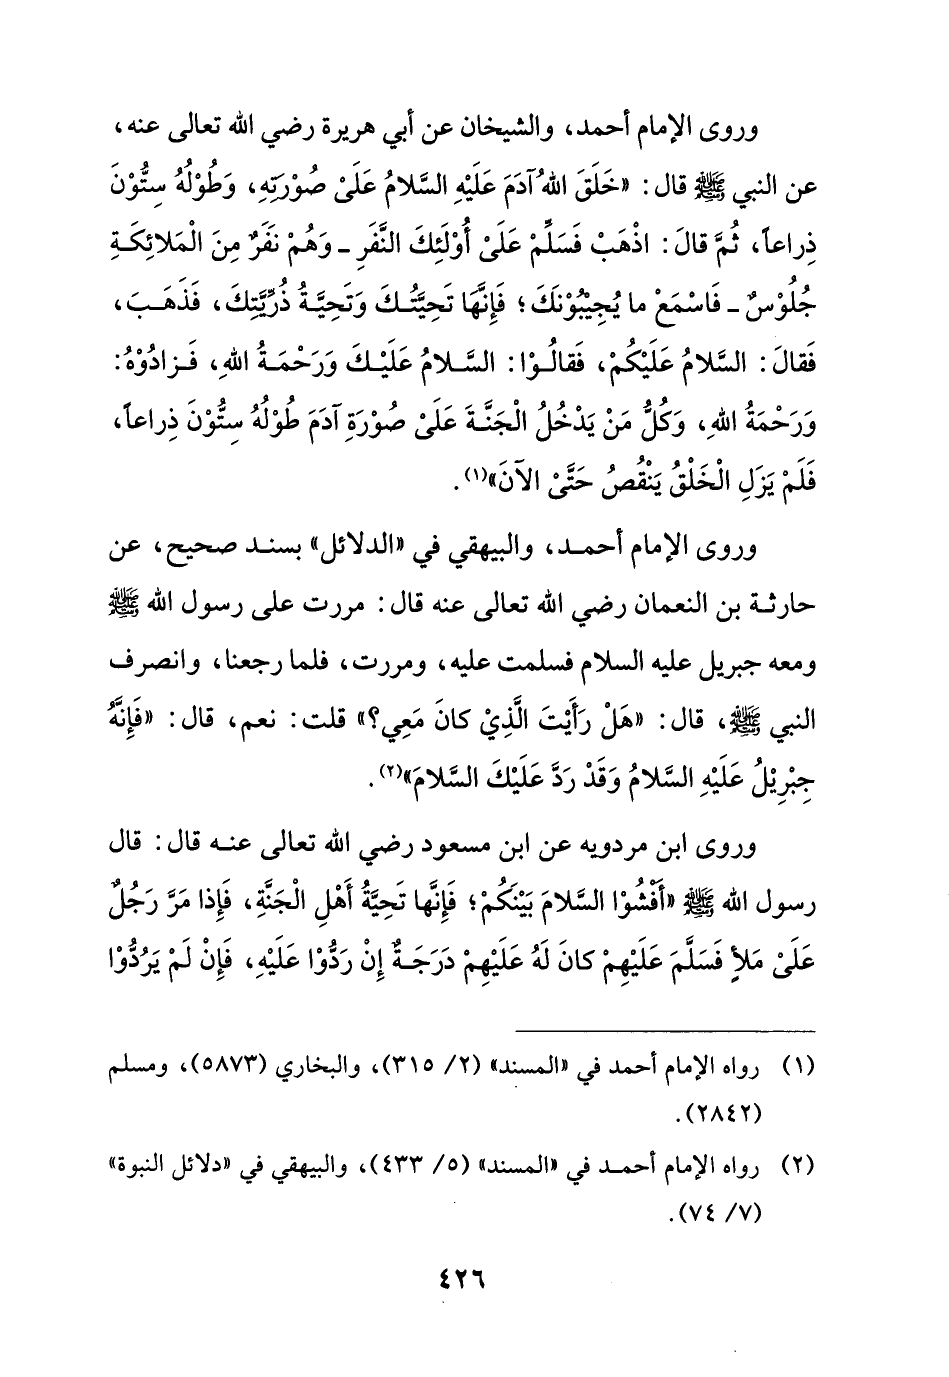 وروى الإمام أحمد، والشيخان عن أبي هريرة رضي الله تعالى عنه،
عن النبي ﷺ قال: «خَلَقَ اللهُ آدَمَ عَلَيْهِ السَّلامُ عَلَىْ صُوْرَتِهِ، وَطُوْلُهُ سِتُّوْنَ
ذِراعاً، ثُمَّ قالَ: اذْهَبْ فَسَلِّمْ عَلَىْ أُوْلَئِكَ النَّفَرِ ـ وَهُمْ نَفَرٌ مِنَ الْمَلائِكَةِ
جُلُوْسٌ ـ فَاسْمَعْ ما يُجِيْبُوْنَكَ؛ فَإِنَّهَا تَحِيَّتُكَ وَتَحِيَّةُ ذُرِّيَّتِكَ، فَذَهَبَ،
فَقالَ: السَّلامُ عَلَيْكُمْ، فَقالُوْا: السَّلامُ عَلَيْكَ وَرَحْمَةُ اللهِ، فَزادُوْهُ:
وَرَحْمَةُ اللهِ، وَكُلُّ مَنْ يَدْخُلُ الْجَنَّةَ عَلَىْ صُوْرَةِ آدَمَ طُوْلُهُ سِتُّوْنَ ذِراعاً،
فَلَمْ يَزَلِ الْخَلْقُ يَنْقُصُ حَتَّىْ الآنَ»(١).
وروى الإمام أحمد، والبيهقي في «الدلائل» بسند صحيح، عن
حارثة بن النعمان رضي الله تعالى عنه قال: مررت على رسول الله ﷺ
ومعه جبريل عليه السلام فسلمت عليه، ومررت، فلما رجعنا، وانصرف
النبي ﷺ، قال: «هَلْ رَأَيْتَ الَّذِيْ كانَ مَعِي؟» قلت: نعم، قال: «فَإِنَّهُ
جِبْرِيْلُ عَلَيْهِ السَّلامُ وَقَدْ رَدَّ عَلَيْكَ السَّلامَ»(٢).
وروى ابن مردويه عن ابن مسعود رضي الله تعالى عنه قال: قال
رسول الله ﷺ «أَفْشُوْا السَّلامَ بَيْنَكُمْ؛ فَإِنَّها تَحِيَّةُ أَهْلِ الْجَنَّةِ، فَإِذا مَرَّ رَجُلٌ
عَلَىْ مَلأٍ فَسَلَّمَ عَلَيْهِمْ كانَ لَهُ عَلَيْهِمْ دَرَجَةٌ إِنْ رَدُّوْا عَلَيْهِ، فَإِنْ لَمْ يَرُدُّوْا
(١) رواه الإمام أحمد في «المسند» (٢/ ٣١٥)، والبخاري (٥٨٧٣)، ومسلم
(٢٨٤٢).
(٢) رواه الإمام أحمد في «المسند» (٥/ ٤٣٣)، والبيهقي في «دلائل النبوة»
(٧/ ٧٤).
٤٢٦